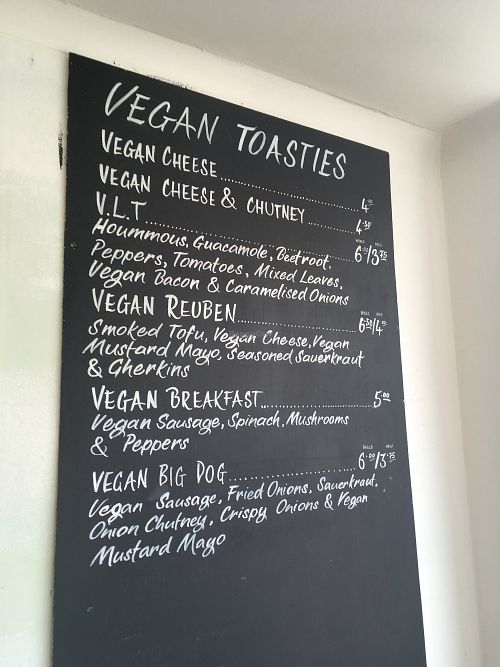 VEGAN TOASTIES
VEGAN CHEESE
VEGAN CHEESE & CHUTNEY 4.50
V.L.T 6.00/3.75
Hoummous, Guacamole, Beetroot,
Peppers, Tomatoes, Mixed Leaves,
Vegan Bacon & Caramelised Onions
VEGAN REUBEN
Smoked Tofu, Vegan Cheese, Vegan
Mustard Mayo, Seasoned Sauerkraut
& Gherkins
VEGAN BREAKFAST 5.00
Vegan Sausage, Spinach, Mushrooms
& Peppers
VEGAN BIG DOG 6.00/3.75
Vegan Sausage, Fried Onions, Sauerkraut,
Onion Chutney, Crispy Onions & Vegan
Mustard Mayo